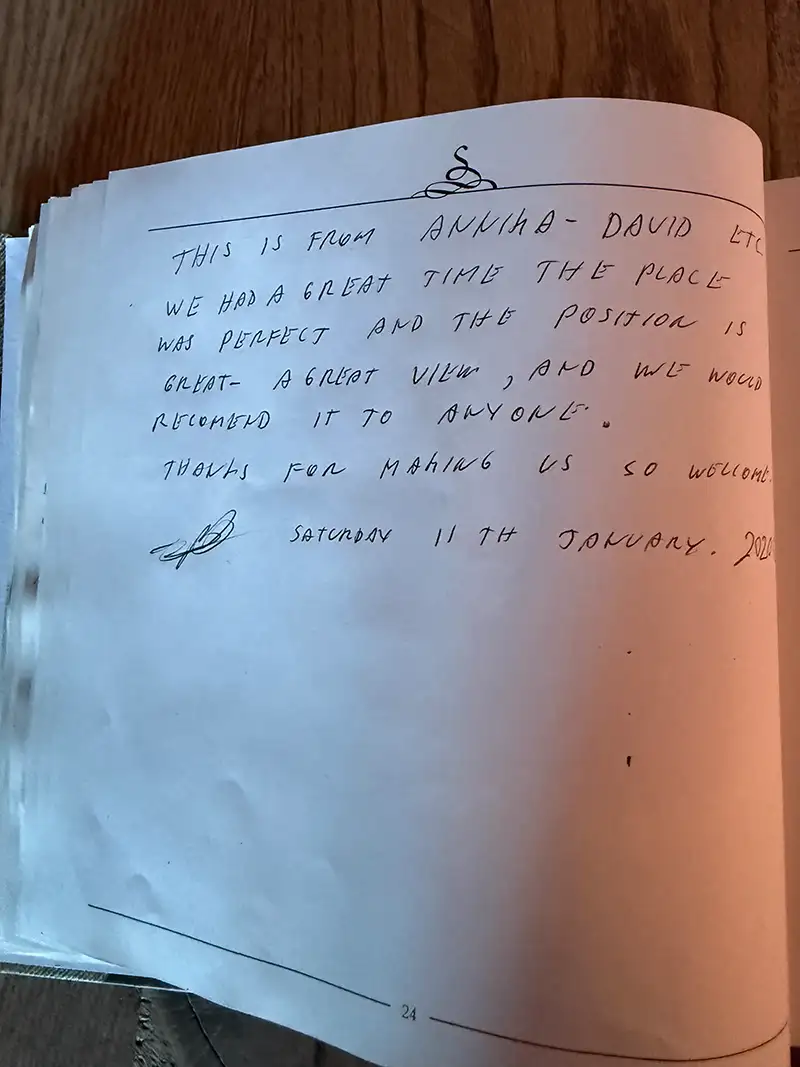 THIS IS FROM ANNIKA - DAVID ETC
WE HAD A GREAT TIME THE PLACE
WAS PERFECT AND THE POSITION IS
GREAT- A GREAT VIEW, AND WE WOULD
RECOMEND IT TO ANYONE.
THANKS FOR MAKING US SO WELLCOME.
SATURDAY 11TH JANUARY. 2020
24